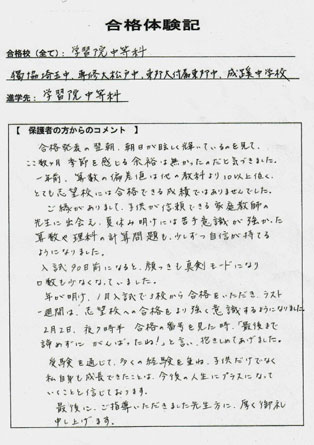 合格体験記
合格校(全て): 学習院中等科
獨協埼玉中、専修大松戸中、東邦大付属東邦中、成蹊中学校
進学先: 学習院中等科
【 保護者の方からのコメント 】
合格発表の翌朝、朝日が眩しく輝いているのを見て、
ここ数ヶ月季節を感じる余裕は無かったのだと気づきました。
一年前、算数の偏差値は他の教科より10以上低く、
とても志望校には合格できる成績ではありませんでした。
ご縁がありまして、子供が信頼できる家庭教師の
先生に出会え、夏休み明けには苦手意識が強かった
算数や理科の計算問題も、少しずつ自信が持てる
ようになりました。
入試90日前になると、顔つきも真剣モードになり
口数も少なくなっていました。
年が明け、1月入試で3校から合格をいただき、ラスト
一週間は、志望校への合格をより強く意識するようになりました。
2月2日、夜9時半 合格の番号を見た時、「最後まで
諦めずに がんばったね!」と言い、抱きしめてあげました。
受験を通じて、多くの経験を重ね、子供だけでなく
私自身も成長できたことは、今後の人生にプラスになって
いくことと信じております。
最後に、ご指導いただきました先生方に、厚く御礼
申し上げます。